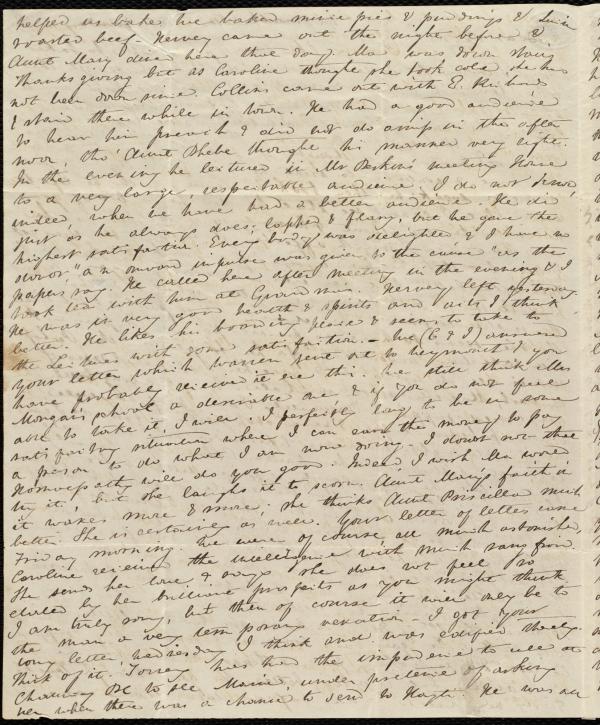 helped us bake we baked mince pies & puddings &
roasted beef. Hervey came out the night before &
Aunt Mary dined here that day. Ma was down stairs
Thanksgiving but as Caroline thought she took cold she has
not been down since. Collins came out with E.
& staid there while in town. He had a good audience
to hear him preach & did not do amiss in the after
noon, tho' Aunt Phebe thought his manner very light.
In the evening he lectured in Mr Perkins' meeting House
to a very large respectable audience. I do not know,
indeed, when we have had a better audience. He did
just as he always does, & plary, but he gave the
highest satisfaction. Every body was delighted & I have no
doubt "a n onward impulse was given to the cause" as the
papers say. He called here after meeting in the evening & I
took tea with him at Grandma's. Hervey left yesterday.
He was in very good health & spirits and acts I think
better. He likes his boarding place & seems to take to
the Leishes with some satisfaction. — We (C & I) answered
your letter which Warren sent out to Weymouth & you
have probably received it ere this. We still think Miss
Morgan's school a desirable one, & if you do not feel
able to take it, I will. I perfectly long to be in some
satisfactory situation where I can earn the money to pay
a person to do what I am now doing. I doubt not that
Homoeopathy will do you good. Indeed, I wish Ma would
try it, but she laughs it to scorn. Aunt Mary's faith in
it waxes more & more. She thinks Aunt Priscilla much
better. She is certainly as well. Your letter of letters came
Friday morning. We were of course all much astonished,
Caroline received the intelligence with much sang froid.
She sends her love, & says she does not feel so
elated by her brilliant prospects as you might think.
I am truly sorry, but then of course it will only be to
the man a very temporary vexation — I got your
long letter, Wednesday I think and was edified thereby.
Think of it. Torrey has had the impudence to call at
Chauncy Pl to see Maria, under pretence of asking
her when there was a chance to send to Hayti. He was an